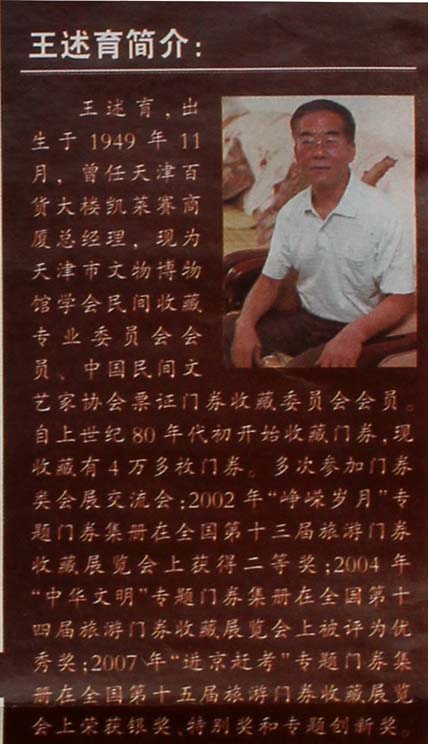 王述育简介:
王述育,出
生于1949年11
月,曾任天津百
货大楼凯莱赛商
厦总经理,现为
天津市文物博物
馆学会民间收藏
专业委员会会
员、中国民间文
艺家协会票证门券收藏委员会会员。
自上世纪80年代初开始收藏门券,现
收藏有4万多枚门券。多次参加门券
类会展交流会;2002年“峥嵘岁月”专
题门券集册在全国第十三届旅游门券
收藏展览会上获得二等奖;2004年
“中华文明”专题门券集册在全国第十
四届旅游门券收藏展览会上被评为优
秀奖;2007年“进京赶考”专题门券集
册在全国第十五届旅游门券收藏展览
会上荣获银奖、特别奖和专题创新奖。